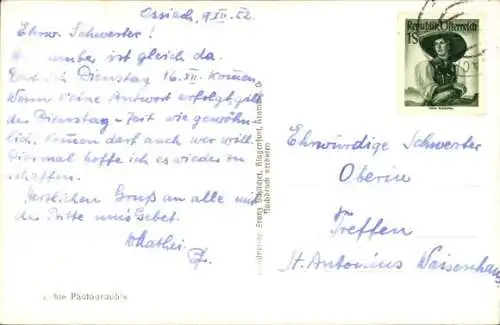 Ossiach, 9.XII.52.
Ehrw. Schwester!
ist gleich da.
Dienstag 16.XII. kommen.
Wenn keine Antwort erfolgt, gilt
der Dienstag - Zeit wie gewöhn-
lich. Kommen darf auch wer will.
Diesmal hoffe ich es wieder zu
schaffen.
Herzlichen Gruß an alle mit
der Bitte ums Gebet.
Republik Österreich
1S
Ehrwürdige Schwester
Oberin
Treffen
St. Antonius Waisenhaus
Franz Schilcher, Klagenfurt
Nachdruck verboten
Echte Photographie